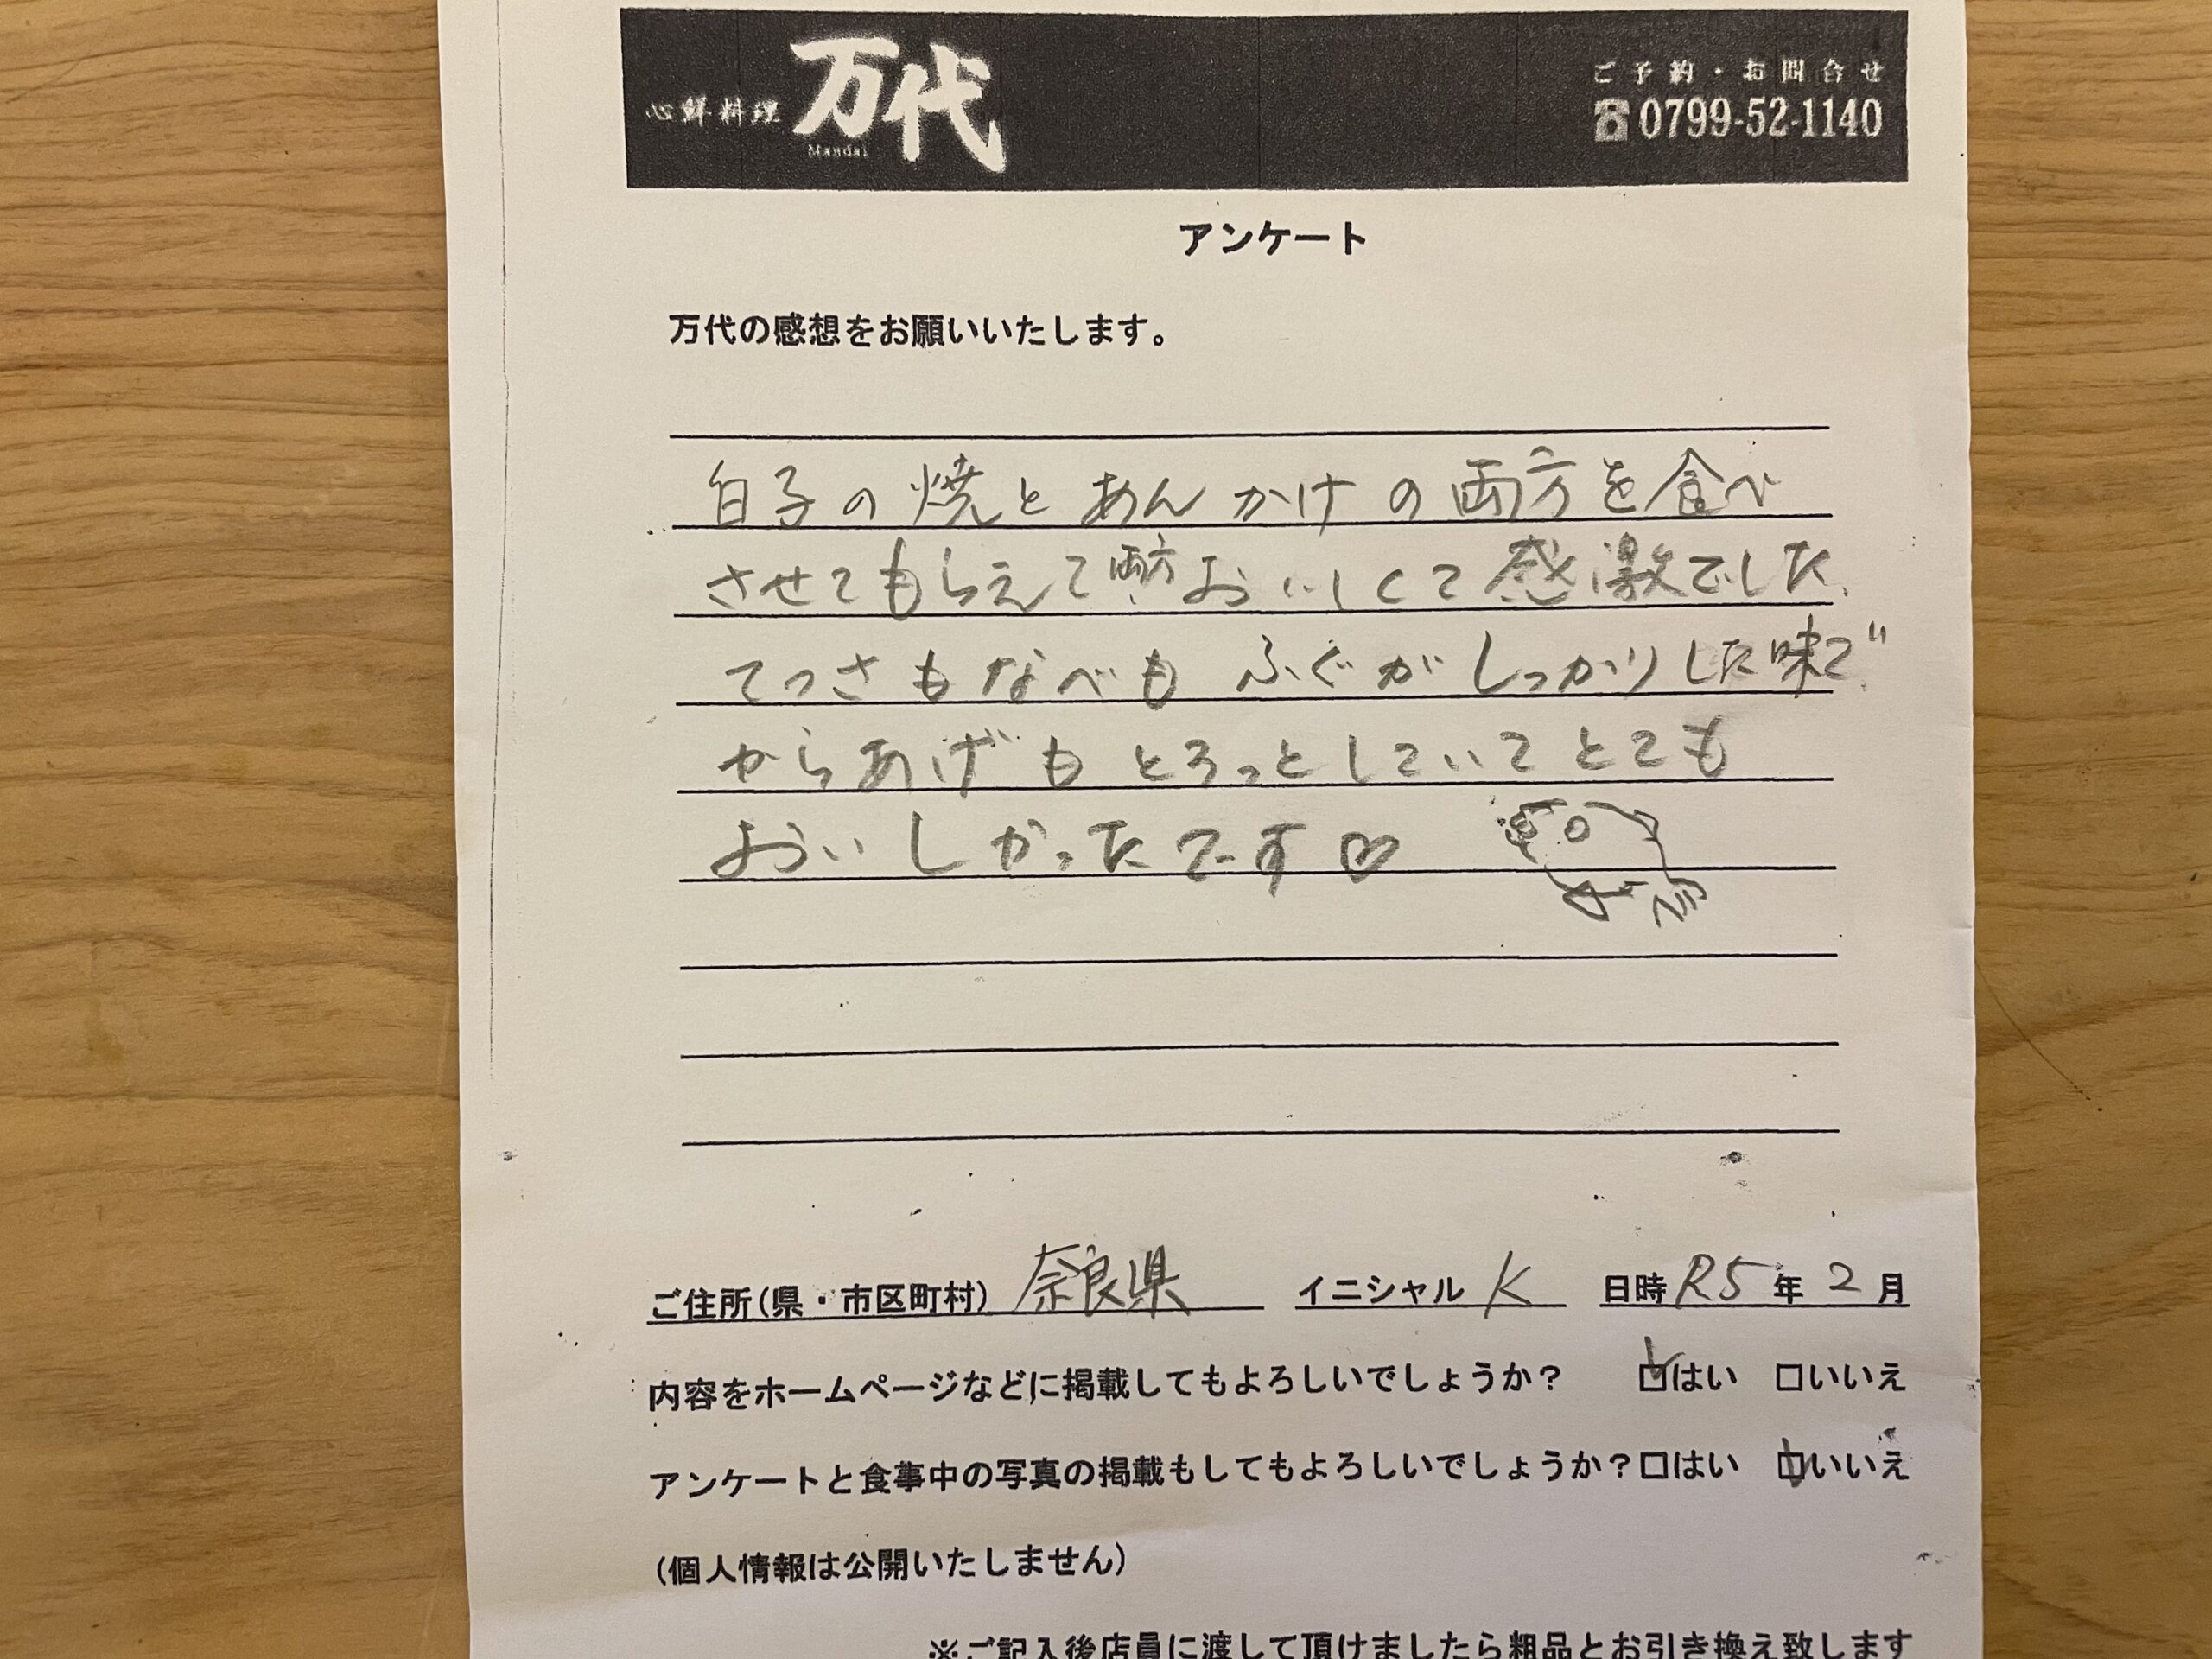 心鮮料理 万代
Mandai
ご予約・お問合せ
☎0799-52-1140
アンケート
万代の感想をお願いいたします。
白子の焼とあんかけの両方を食べ
させてもらえて両方おいしくて感激でした.
てっさもなべもふぐがしっかりした味で
からあげもとろっとしていてとても
おいしかったです♡
ご住所(県・市区町村) 奈良県 イニシャル K 日時 R5 年 2 月
内容をホームページなどに掲載してもよろしいでしょうか? ☑はい □いいえ
アンケートと食事中の写真の掲載もしてもよろしいでしょうか?□はい ☑いいえ
(個人情報は公開いたしません)
※ご記入後店員に渡して頂けましたら粗品とお引き換え致します